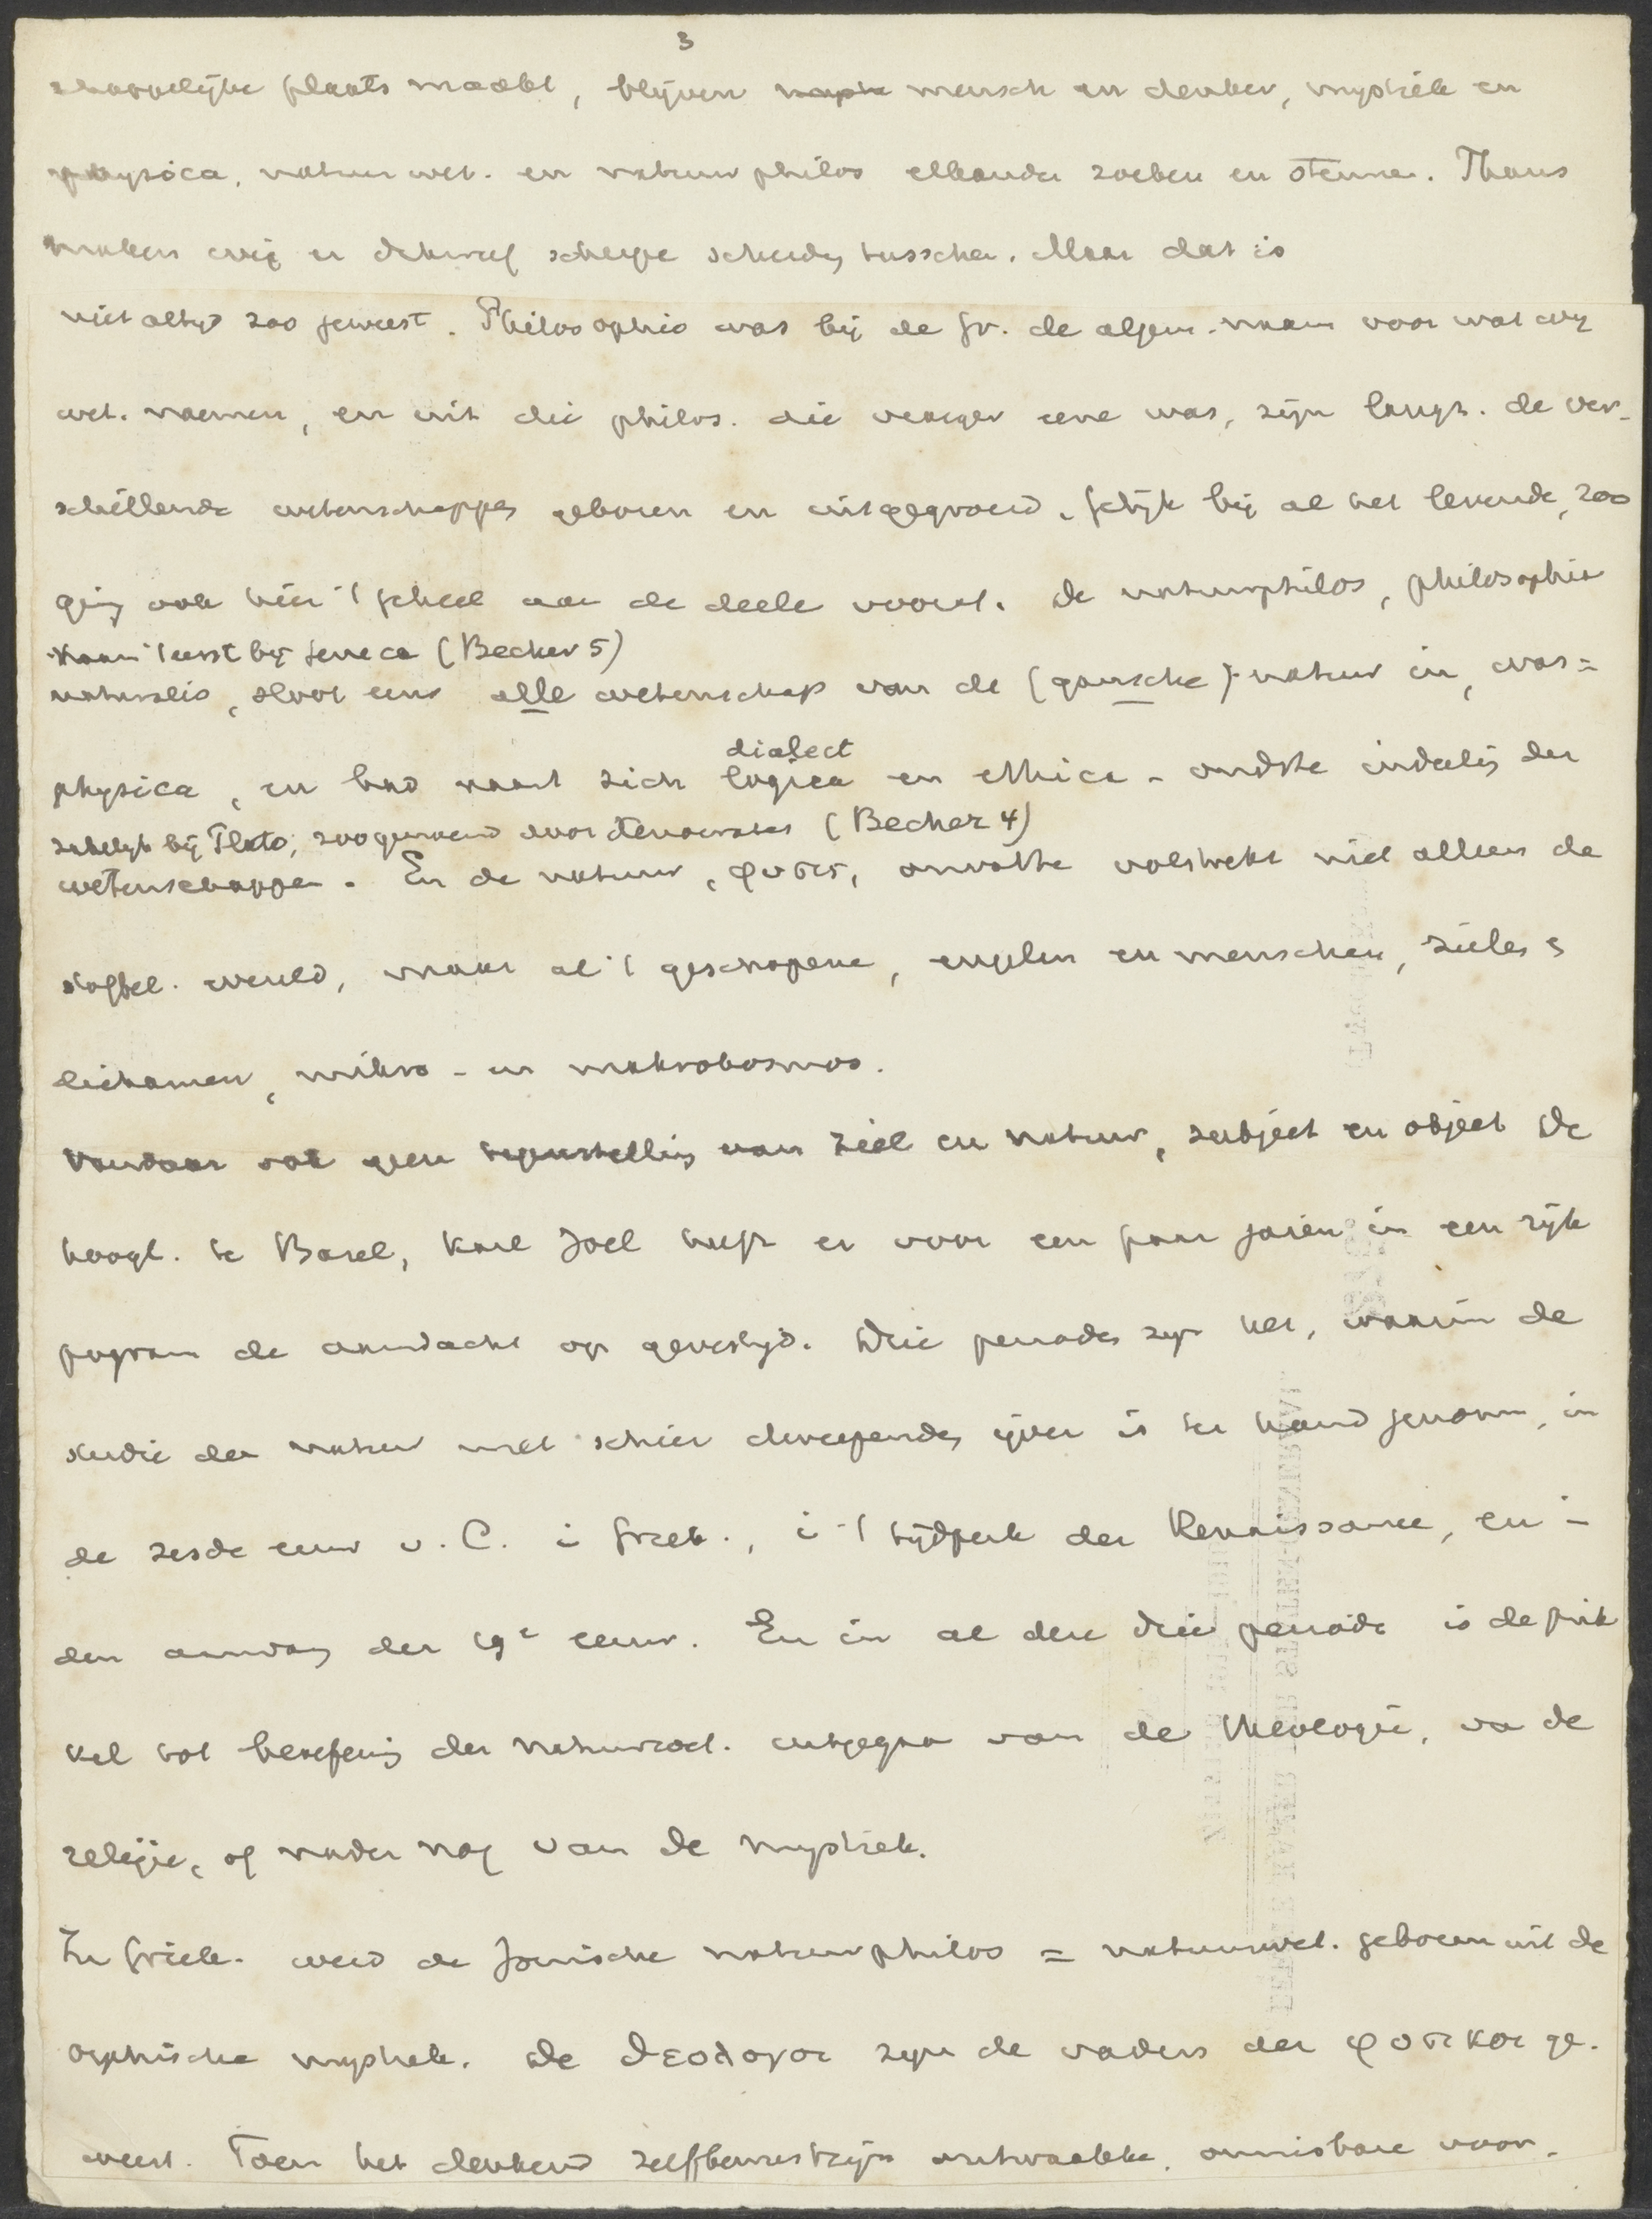 3
schappelijke plaats maakt, blijven mensch en denker, mystiek en
physica, natuurwet. en natuurphilos elkander zoeken en steunen. Thans
maken wij er dikwijls scherpe scheiding tusschen. Maar dat is
niet altijd zoo geweest. Philosophie was bij de Gr. de algem. naam voor wat wij
wet. noemen, en uit die philos. die vroeger eene was, zijn langz. de ver-
schillende wetenschappen geboren en uitgegroeid. Gelijk bij al het levende, zoo
ging ook hier 't geheel aan de deele vooraf. De natuurphilos, philosophia
naam 't eerst bij Seneca (Becher 5)
naturalis, sloot eens alle wetenschap van de (gansche) natuur in, was =
dialect
physica, en had naast zich logica en ethica - oudste indeeling der
zakelijk bij Plato, zoogenoemd door Xenocrates (Becher 4)
wetenschappen. En de natuur, φυσις, omvatte volstrekt niet alleen de
stoffel. wereld, maar al 't geschapene, engelen en menschen, zielen &
lichamen, mikro- en makrokosmos.
Vandaar ook geen tegenstelling van ziel en natuur, subject en object De
hoogl. te Basel, Karl Joel heeft er voor een paar jaren in een rijk
program de aandacht op gevestigd. Drie perioden zijn het, waarin de
studie der natuur met schier dweepende ijver is ter hand genomen, in
de zesde eeuw v. C. in Griek., in 't tijdperk der Renaissance, en in
den aanvang der 19e eeuw. En in al deze drie perioden is de prik
kel tot beoefening der natuurwet. uitgegaan van de theologie, van de
religie, of nader nog van de mystiek.
In Griek. werd de Jonische natuurphilos = natuurwet. geboren uit de
orphische mystiek. De θεολογοι zijn de vaders der φυσικοι ge-
weest. Toen het denkend zelfbewustzijn ontwaakte, onmisbare voor-